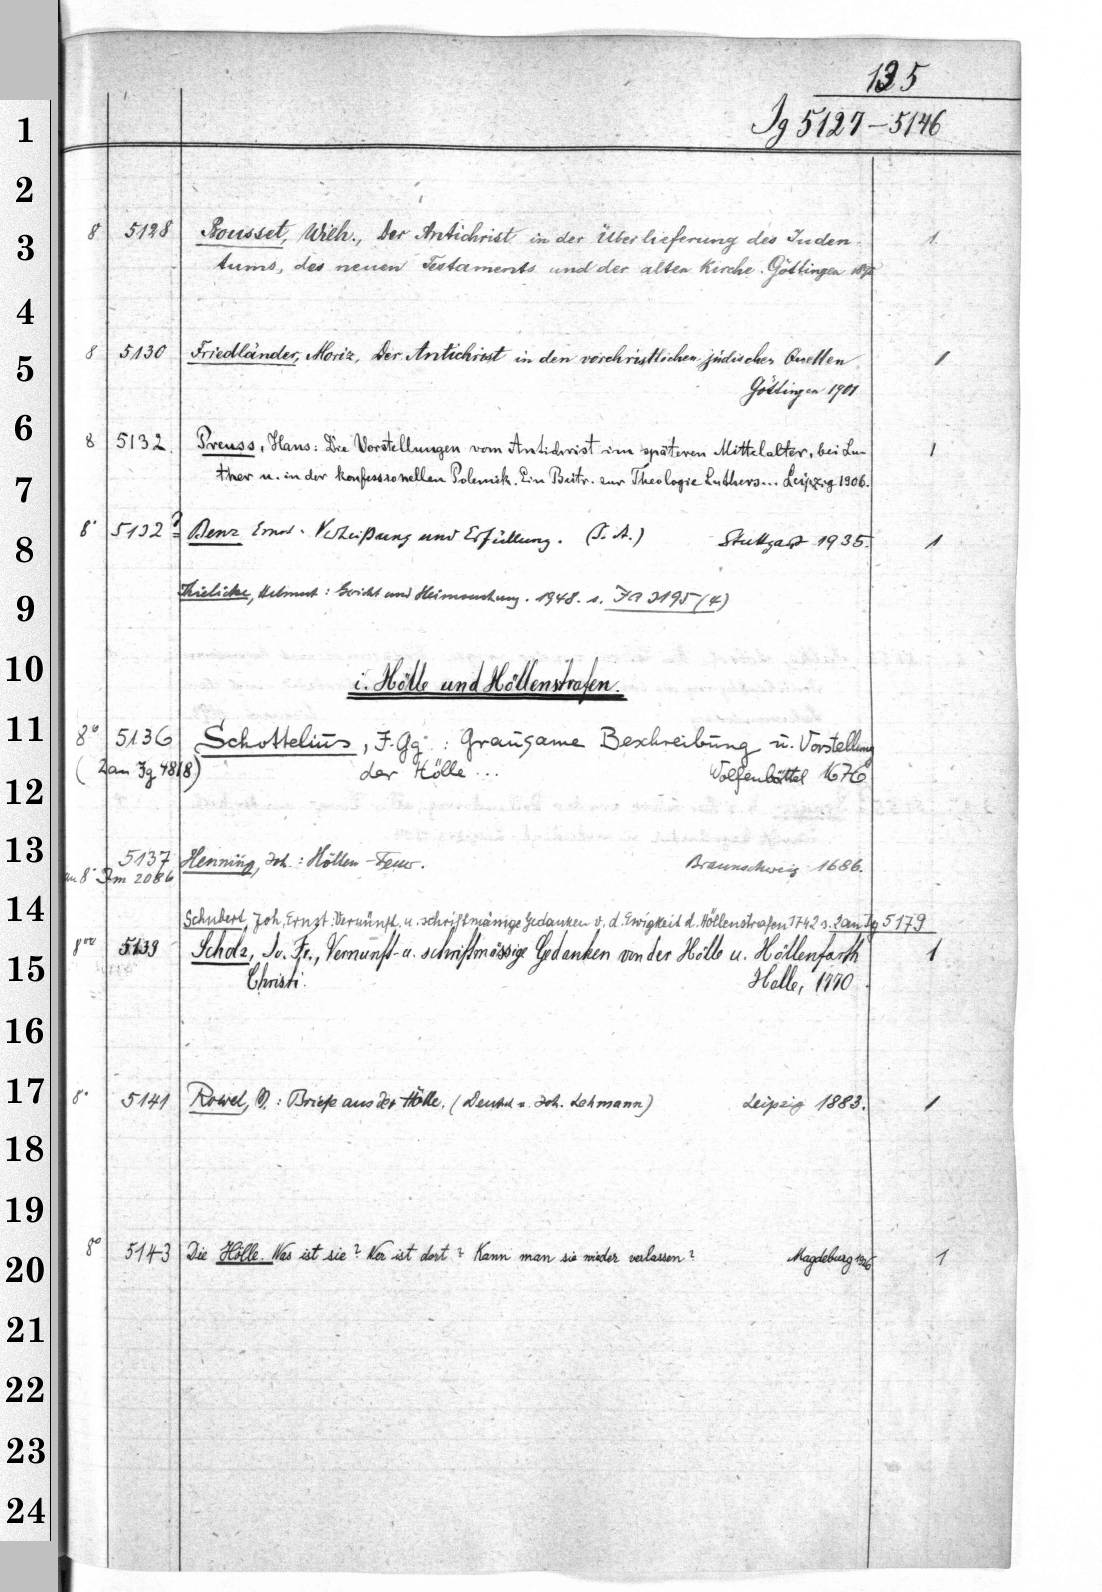 135
Jg 5127-5146
1
2
3
4
5
6
7
8
9
10
11
12
13
14
15
16
17
18
19
20
21
22
23
24
8 5128 Bousset, Wilh., Der Antichrist in der Überlieferung des Juden- 1
tums, des neuen Testaments und der alten Kirche. Göttingen
8 5130 Friedländer, Moriz, Der Antichrist in den vorchristlichen jüdischen Quellen 1
Göttingen 1901
8 5132 Preuss, Hans: Die Vorstellungen vom Antichrist im späteren Mittelalter, bei Lu- 1
ther u. in der konfessionellen Polemik. Ein Beitr. zur Theologie Luthers... Leipzig 1906.
8° 5132? Benz Ernst: Verheißung und Erfüllung. (S. A.) Stuttgart 1935. 1
Thielicke, Helmut: Gericht und Heimsuchung. 1948. s. Ja 3195 (4)
i. Hölle und Höllenstrafen.
8° 5136 Schottelius, J. Gg.: Grausame Beschreibung u. Vorstellung
(2 an Jg 4818) der Hölle ... Wolfenbüttel 1676
5137 Henning, Joh.: Höllen-Feuer. Braunschweig 1686.
an 8° Im 2086
Schubert, Joh. Ernst: Vernünft. u. schriftmäßige Gedanken v. d. Ewigkeit d. Höllenstrafen 1742 s. 2 an Jg 5179
8° 5139 Scholz, Jo. Fr., Vernunft- u. schriftmässige Gedanken von der Hölle u. Höllenfarth 1
Christi. Halle, 1770.
8° 5141 Rowel, M.: Briefe aus der Hölle. (Deutsch v. Joh. Lehmann) Leipzig 1883. 1
8° 5143 Die Hölle. Was ist sie? Wer ist dort? Kann man sie wieder verlassen? Magdeburg 1926 1